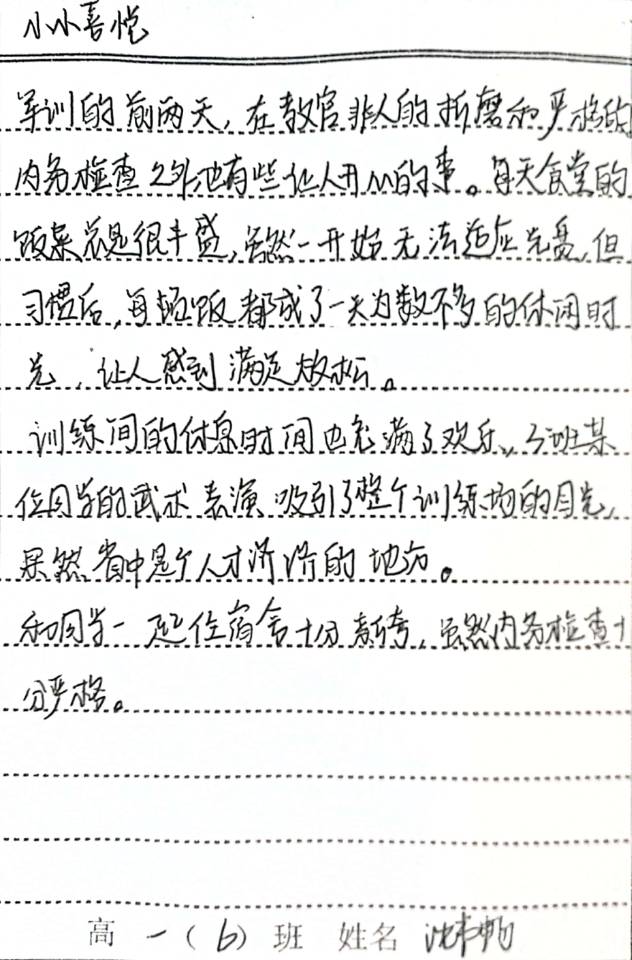 小小喜悦
军训的前两天,在教官非人的折磨和严格的
内务检查之外,也有些让人开心的事。每天食堂的
饭菜总是很丰盛,虽然一开始无法适应光盘,但
习惯后,每顿饭都成了一天为数不多的休闲时
光,让人感到满足放松。
训练间的休息时间也充满了欢乐,5班某
位同学的武术表演吸引了整个训练场的目光,
果然省中是个人才济济的地方。
和同学一起住宿舍十分新奇,虽然内务检查十
分严格。
高一(6)班 姓名 沈